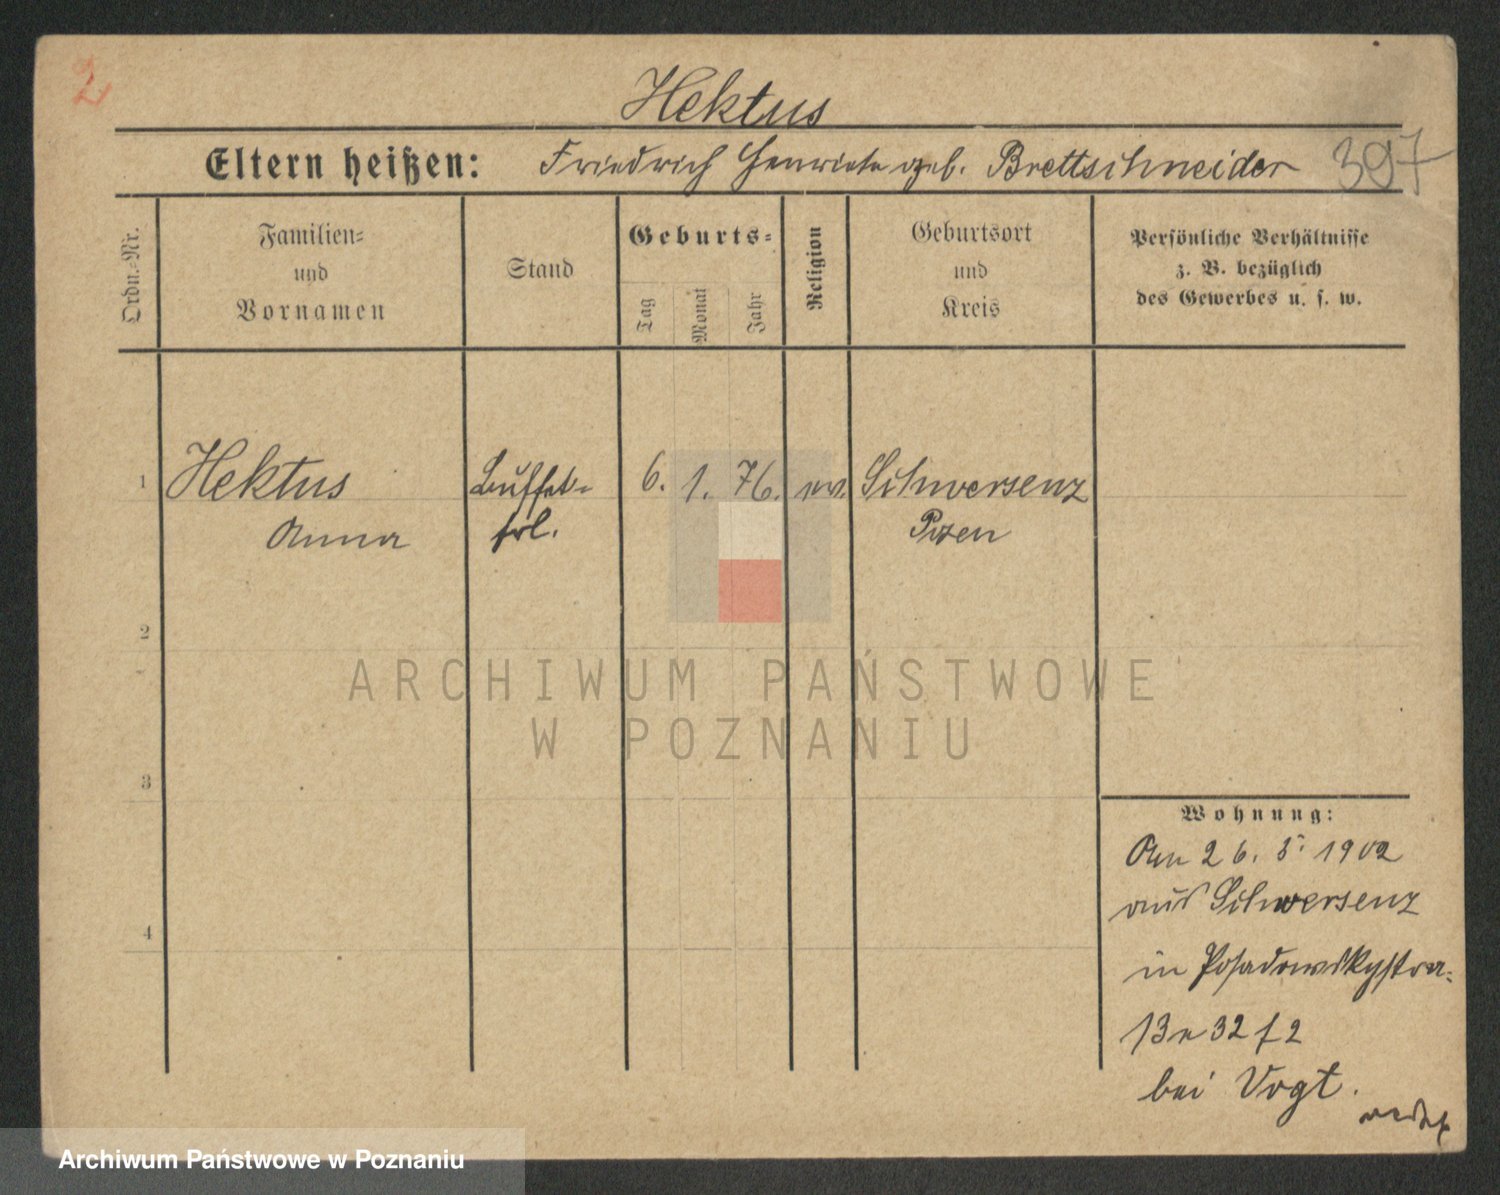 2
Hektus
Eltern heißen: Friedrich Henriete geb. Brettschneider 397
Ordn.-Nr.
Familien-
und
Vornamen
Stand
Geburts-
Tag
Monat
Jahr
Religion
Geburtsort
und
Kreis
Persönliche Verhältnisse
z. B. bezüglich
des Gewerbes u. s. w.
1 Hektus Buffet- 6. 1. 76. ev. Schwersenz
Anna frl. Posen
2
3
4
ARCHIWUM PAŃSTWOWE
W POZNANIU
Wohnung:
Am 26. 5. 1902
aus Schwersenz
in Posadowskystra-
ße 32 f 2
bei Vogt.
Archiwum Państwowe w Poznaniu